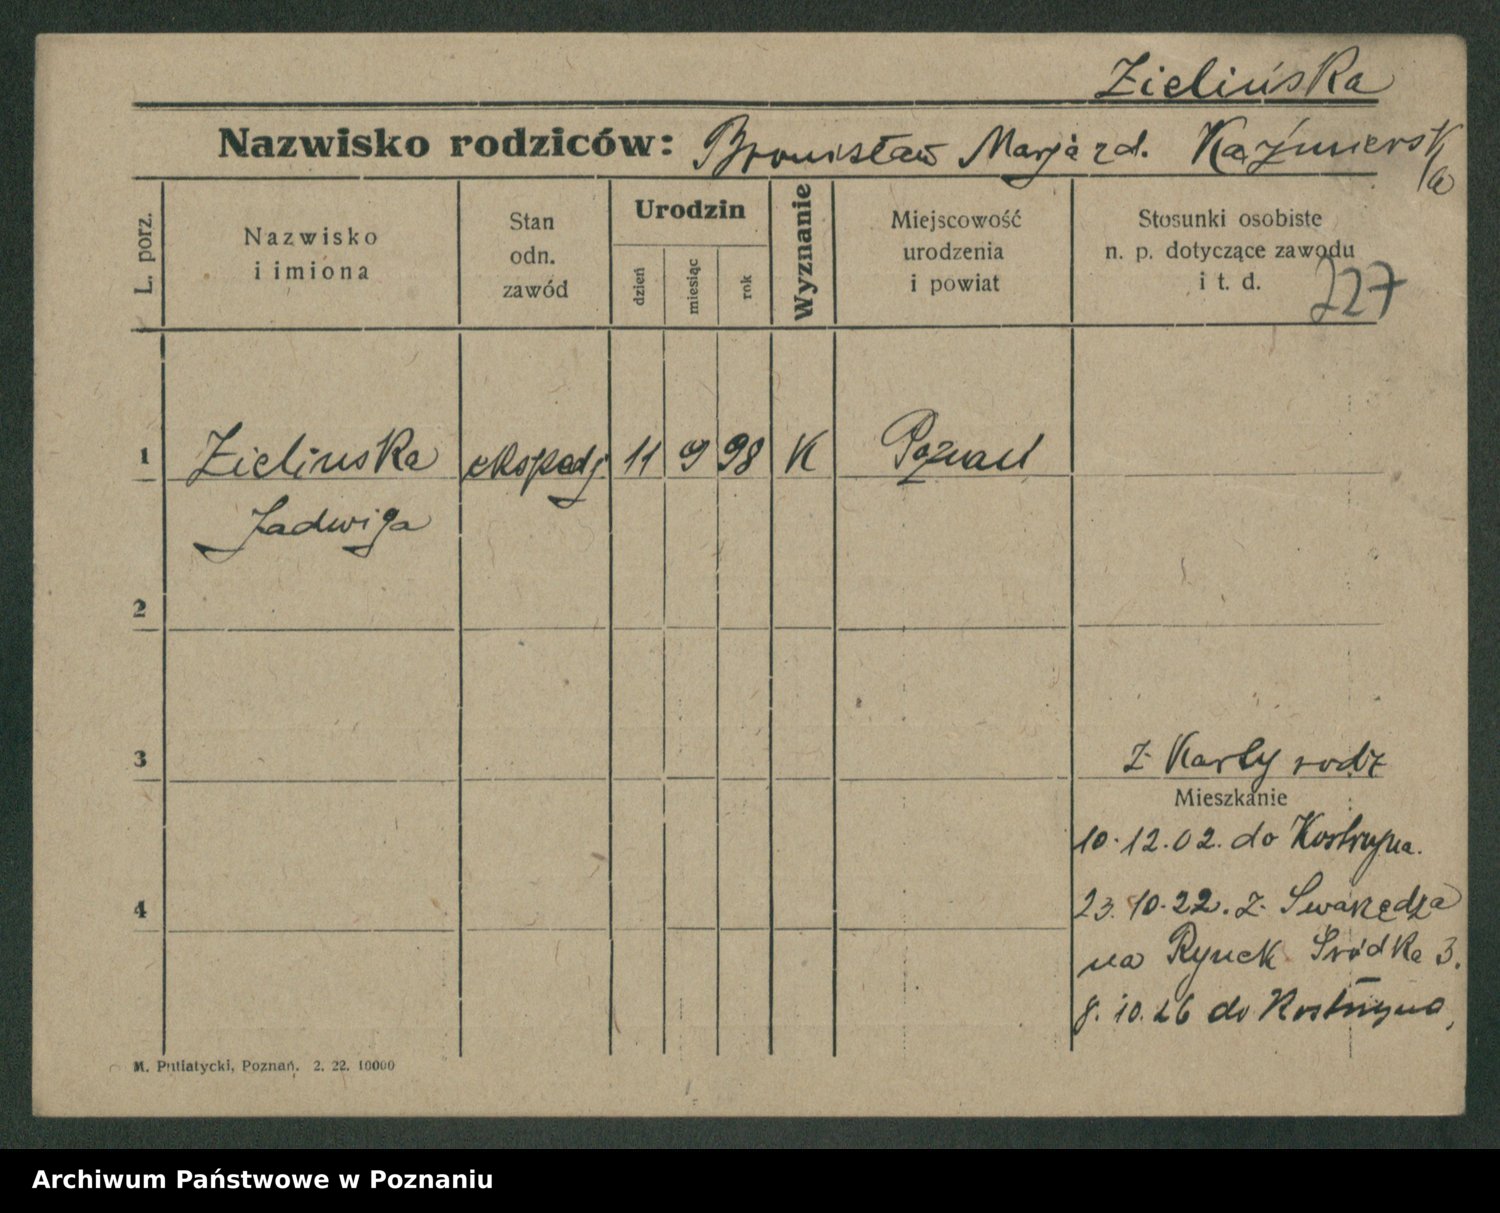 Zielińska
Nazwisko rodziców: Bronisław Marja zd. Kaźmierska
L. porz.
Nazwisko i imiona
Stan odn. zawód
Urodzin
dzień
miesiąc
rok
Wyznanie
Miejscowość urodzenia i powiat
Stosunki osobiste n. p. dotyczące zawodu i t. d.
227
1 Zielinska ekspedj 11 9 98 K Poznań
Jadwiga
2
3
z Karty rodz
Mieszkanie
10.12.02. do Kostrzyna.
4
23.10.22. z Swarzędza
na Rynek Śródka 3.
8.10.26 do Kostrzyna,
M. Putiatycki, Poznań. 2. 22. 10000
Archiwum Państwowe w Poznaniu